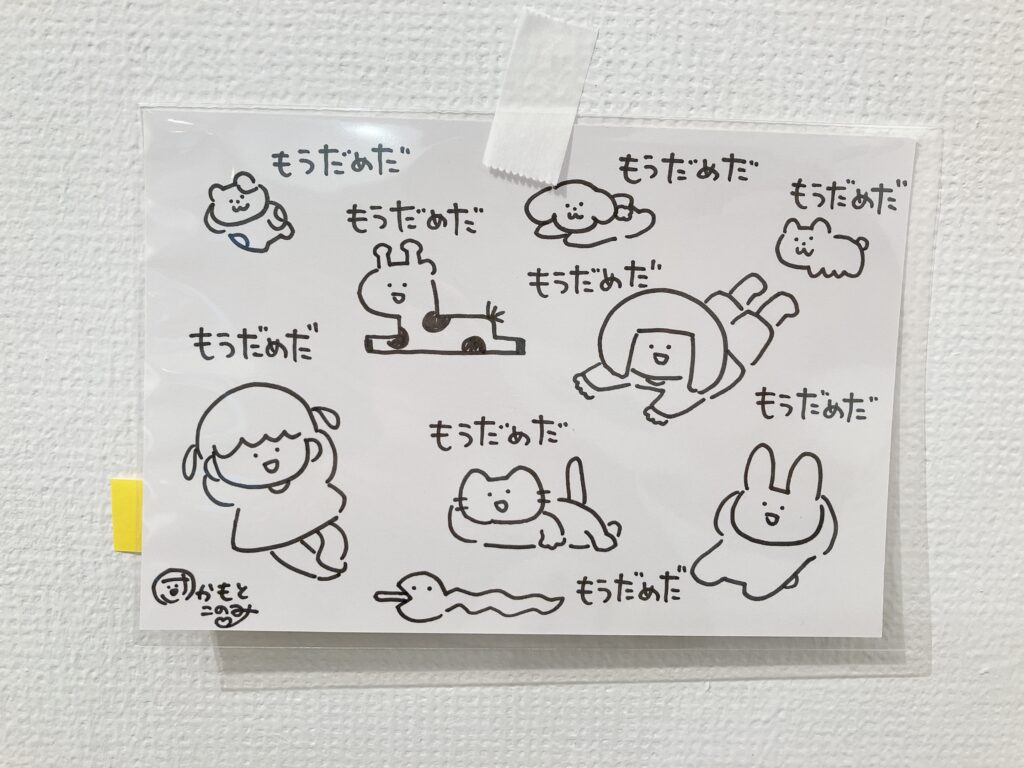 もうだめだ
もうだめだ
もうだめだ
もうだめだ
もうだめだ
もうだめだ
もうだめだ
もうだめだ
もうだめだ
かもと
このみ